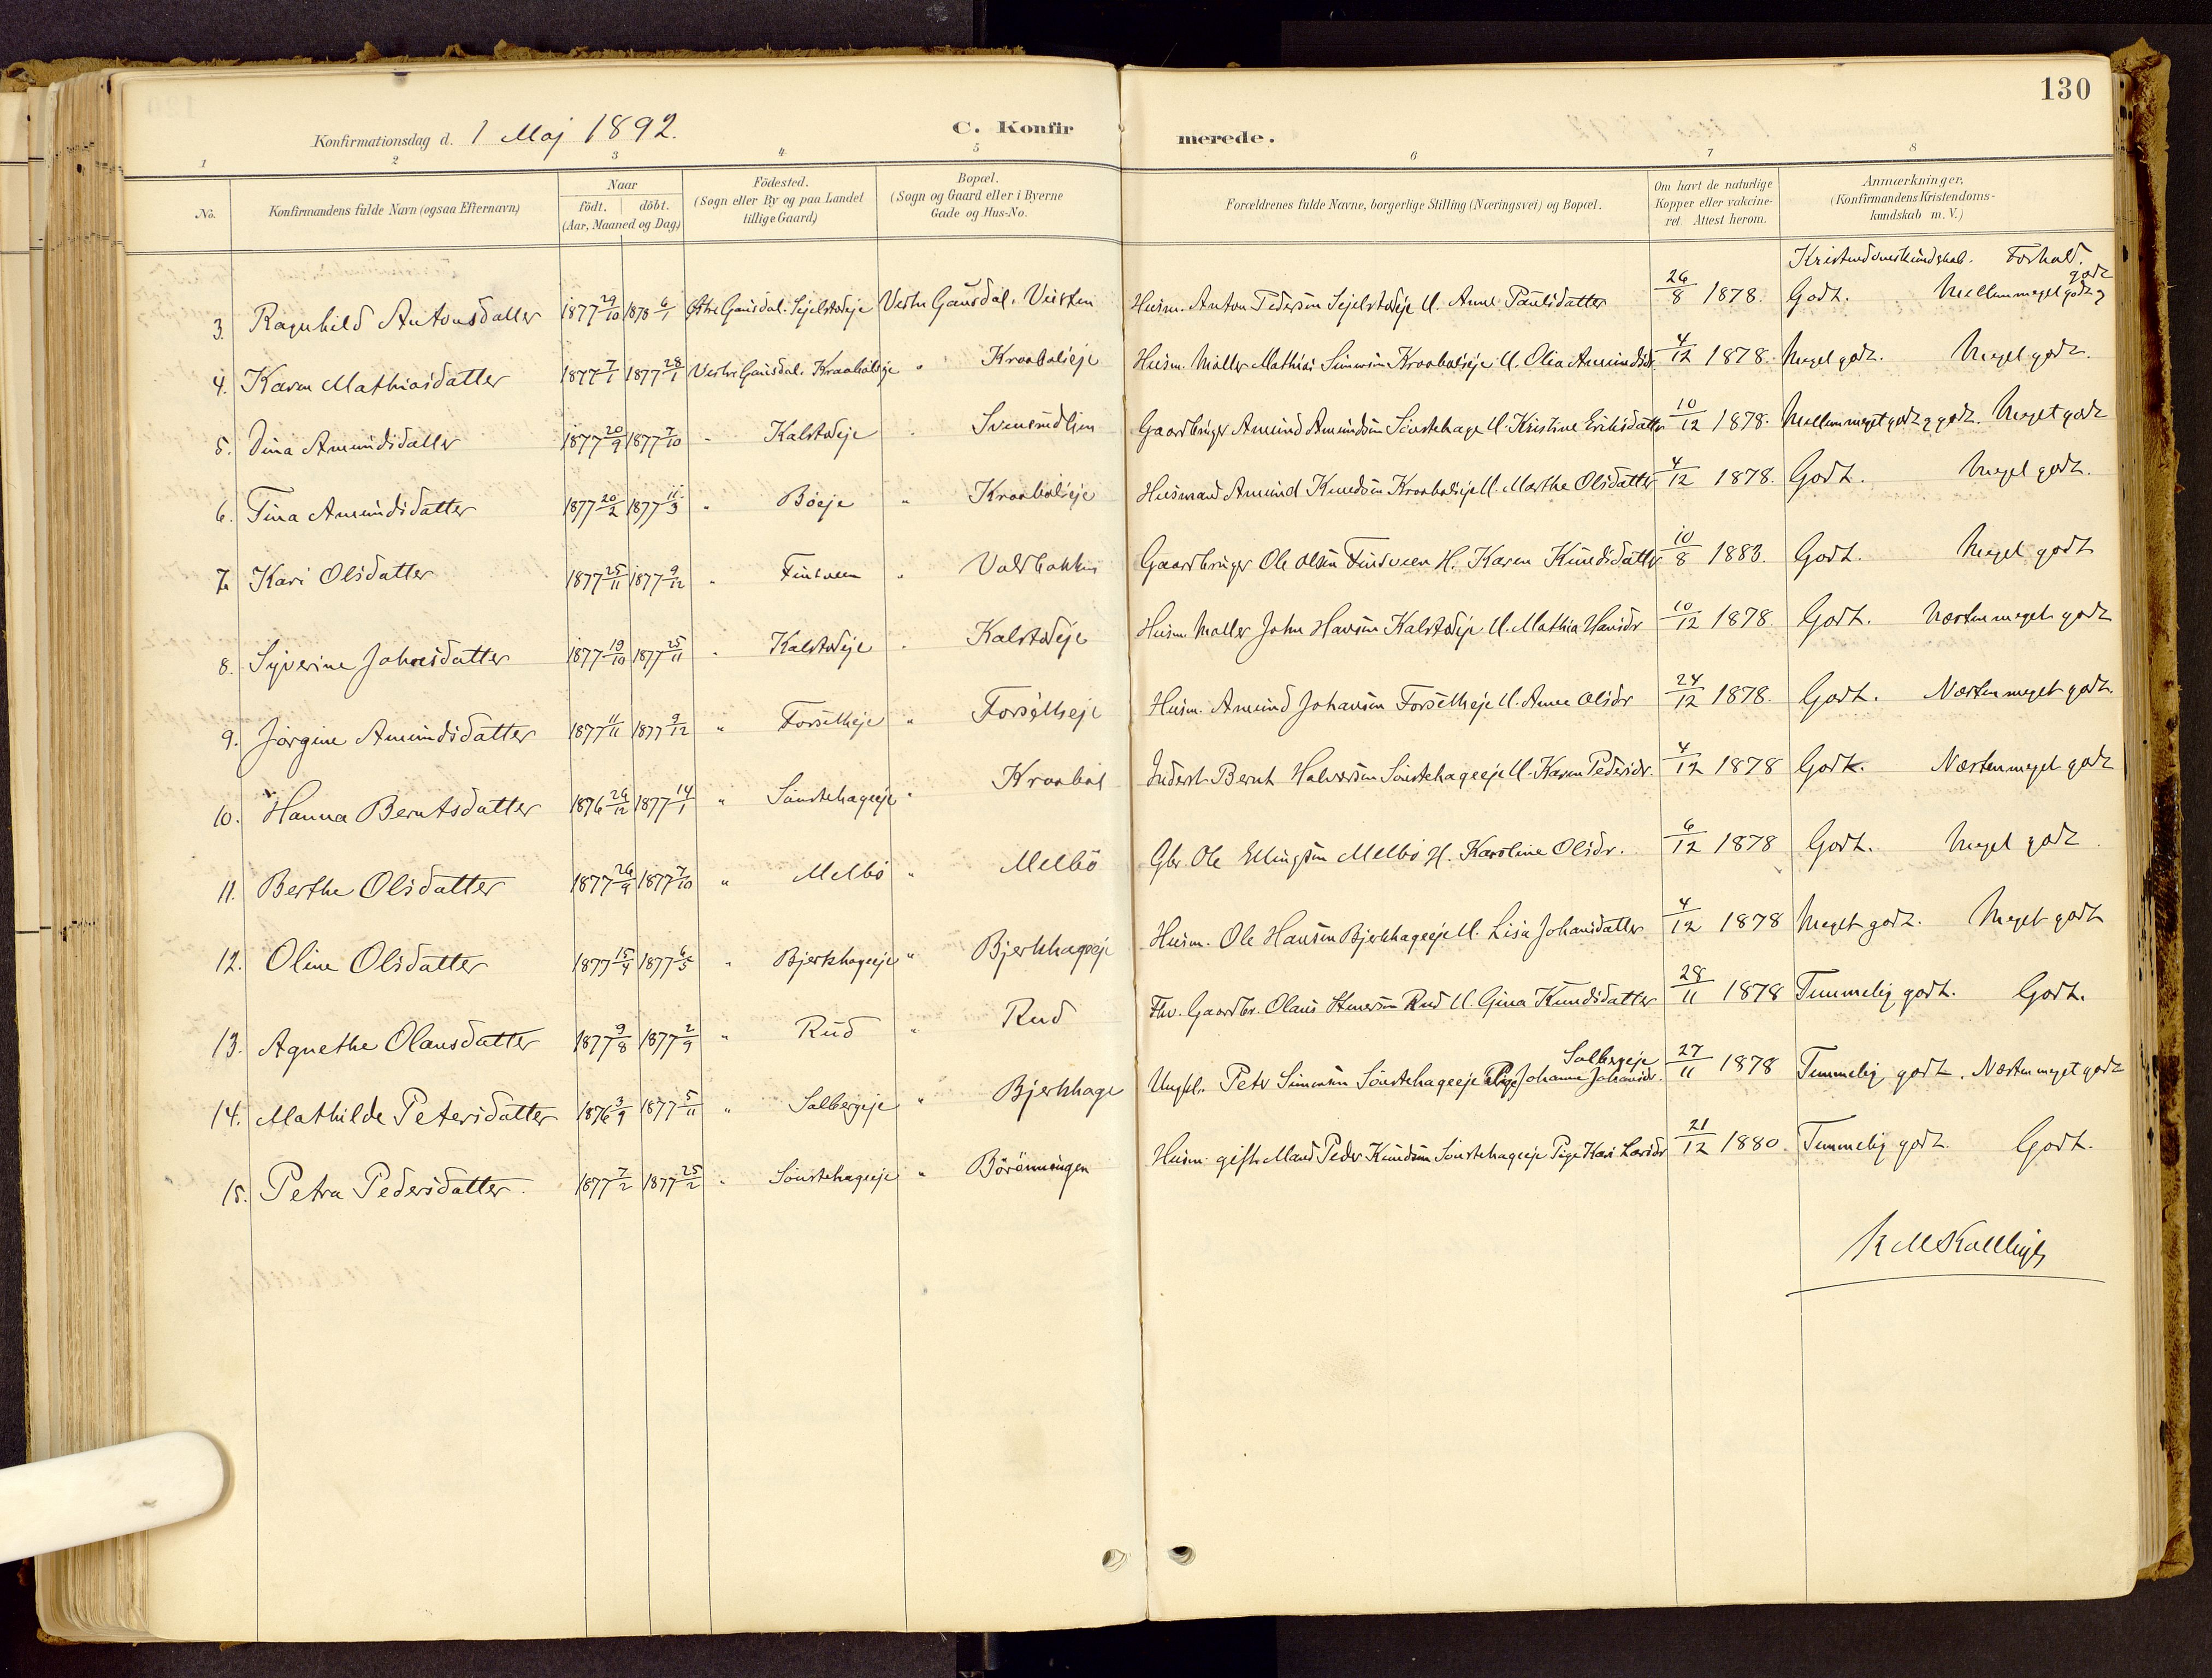 130
Konfirmationsdag d. 1 Maj 1892. C. Konfir merede.
1 2 3 4 5 6 7 8
No. Konfirmandens fulde Navn (ogsaa Efternavn) Naar Födt. döbt. (Aar, Maaned og Dag) Födested. (Sogn eller By og paa Landet tillige Gaard) Bopæl. (Sogn og Gaard eller i Byerne Gade og Hus-No. Forældrenes fulde Navne, borgerlige Stilling (Næringsvei) og Bopæl. Om havt de naturlige Kopper eller vakcineret. Attest herom. Anmærkninger, (Konfirmandens Kristendomskundskab m. V.)
Kristendomskundskab. Forhold.
3. Ragnhild Antonsdatter 1877 29/10 1878 6/1 Østre Gausdal. Sejelstadeje Vestre Gausdal. Veisten Husm. Anton Pedersen Sejelstadeje U. Anne Paulsdatter 26/8 1878. Godt. Mellem meget godt og godt
4. Karen Mathiasdatter 1877 7/1 1877 28/1 Vestre Gausdal. Kraaböleje " Kraaböleje Husm. Möller Mathias Simensen Kraaböleje U. Olia Amundsdr. 4/12 1878. Meget godt. Meget godt.
5. Dina Amundsdatter 1877 20/9 1877 7/10 " Kalstadeje " Svensudlien Gaardbruger Amund Amundsen Sönstehage U. Kristine Eriksdatter 10/12 1878. Mellem meget godt og godt. Meget godt
6. Tina Amundsdatter 1877 20/2 1877 11/3 " Böeje " Kraaböleje Husmand Amund Knudsen Kraaböleje U. Marthe Olsdatter 4/12 1878. Godt. Meget godt.
7. Kari Olsdatter 1877 25/11 1877 9/12 " Finsveen " Valdbakken Gaardbruger Ole Olsen Finsveen H. Karen Knudsdatter 10/8 1883. Godt. Meget godt
8. Syverine Johnsdatter 1877 19/10 1877 25/11 " Kalstadeje " Kalstadeje Husm. Möller John Hansen Kalstadeje U. Mathia Hansdr 10/12 1878. Godt. Næsten meget godt
9. Jörgine Amundsdatter 1877 11/11 1877 9/12 " Forsetheje " Forsetheje Husm. Amund Johansen Forsetheje U. Anne Olsdr 24/12 1878. Godt. Næsten meget godt.
10. Hanna Berntsdatter 1876 26/12 1877 14/1 " Sönstehageeje " Kraaböl Inderst Bernt Halvorsen Sönstehageeje U. Karen Pedersdr. 4/12 1878 Godt. Næsten meget godt
11. Berthe Olsdatter 1877 26/9 1877 7/10 " Melbö " Melbö Gbr. Ole Ellingsen Melbö H. Karoline Olsdr. 6/12 1878 Godt. Meget godt.
12. Oline Olsdatter 1877 15/4 1877 6/5 " Bjerkhageeje " Bjerkhageeje Husm. Ole Hansen Bjerkhageeje U. Lisa Johansdatter 4/12 1878 Meget godt. Meget godt
13. Agnethe Olausdatter 1877 9/8 1877 2/9 " Rud " Rud Fhv. Gaardbr. Olaus Rud U. Gina Knudsdatter 28/11 1878 Temmelig godt. Godt.
14. Mathilde Petersdatter 1876 3/9 1877 5/11 " Solbergeje " Bjerkhage Ungkl. Peter Simensen Sönstehageeje Pige Johanne Johansdr. Solbergeje 27/11 1878 Temmelig godt. Næsten meget godt
15. Petra Pedersdatter. 1877 7/2 1877 25/2 " Sönstehageeje " Börönningen Husm. gift Mand Peder Knudsen Sönstehageeje Pige Kari Larsdr 21/12 1880. Temmelig godt. Godt.